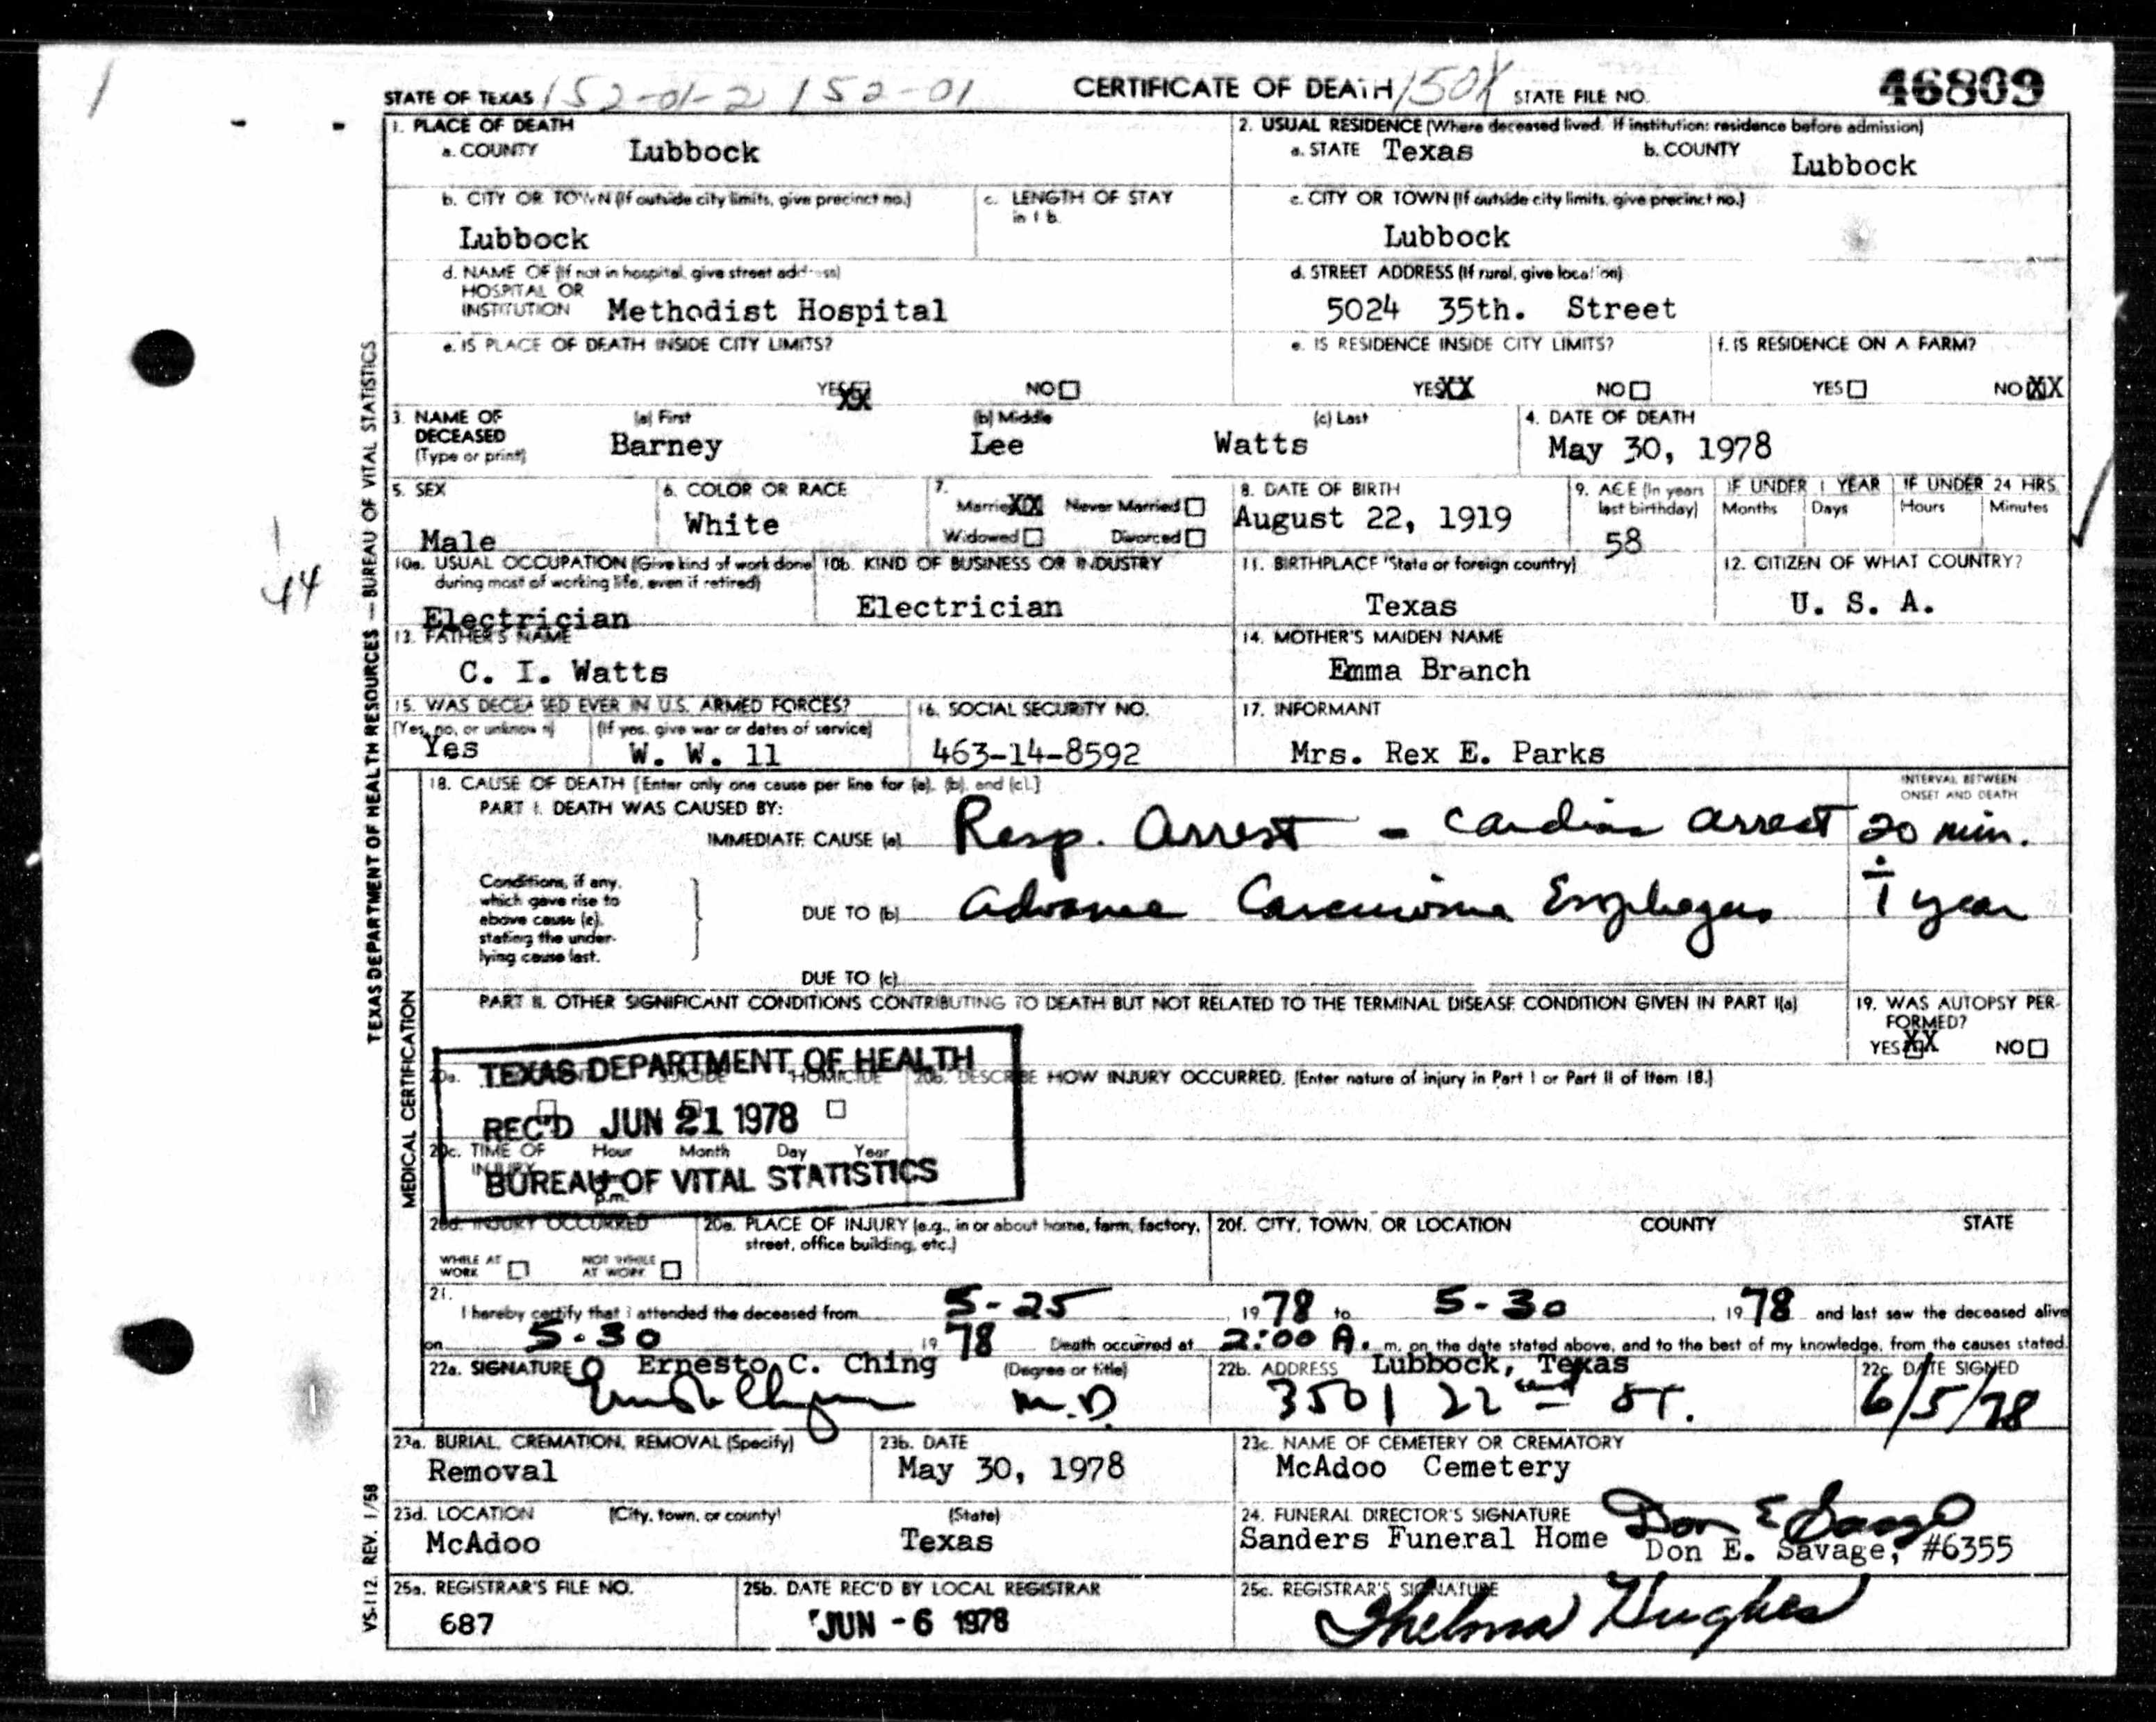 1
STATE OF TEXAS 152-01-2 152-01 CERTIFICATE OF DEATH 150X STATE FILE NO. 46809
1. PLACE OF DEATH
a. COUNTY Lubbock
2. USUAL RESIDENCE (Where deceased lived. If institution: residence before admission)
a. STATE Texas b. COUNTY Lubbock
b. CITY OR TOWN (If outside city limits, give precinct no.)
Lubbock
c. LENGTH OF STAY
in 1 b.
c. CITY OR TOWN (If outside city limits, give precinct no.)
Lubbock
d. NAME OF (If not in hospital, give street address)
HOSPITAL OR
INSTITUTION Methodist Hospital
d. STREET ADDRESS (If rural, give location)
5024 35th. Street
e. IS PLACE OF DEATH INSIDE CITY LIMITS?
YES XX NO
e. IS RESIDENCE INSIDE CITY LIMITS?
YES XX NO
f. IS RESIDENCE ON A FARM?
YES NO XX
3. NAME OF
DECEASED
(Type or print)
(a) First (b) Middle (c) Last
Barney Lee Watts
4. DATE OF DEATH
May 30, 1978
5. SEX
Male
6. COLOR OR RACE
White
7.
Married XX Never Married
Widowed Divorced
8. DATE OF BIRTH
August 22, 1919
9. AGE (In years
last birthday)
58
IF UNDER 1 YEAR
Months Days
IF UNDER 24 HRS.
Hours Minutes
44
10a. USUAL OCCUPATION (Give kind of work done
during most of working life, even if retired)
Electrician
10b. KIND OF BUSINESS OR INDUSTRY
Electrician
11. BIRTHPLACE (State or foreign country)
Texas
12. CITIZEN OF WHAT COUNTRY?
U. S. A.
13. FATHER'S NAME
C. I. Watts
14. MOTHER'S MAIDEN NAME
Emma Branch
15. WAS DECEASED EVER IN U.S. ARMED FORCES?
(Yes, no, or unknown) (If yes, give war or dates of service)
Yes W. W. 11
16. SOCIAL SECURITY NO.
463-14-8592
17. INFORMANT
Mrs. Rex E. Parks
TEXAS DEPARTMENT OF HEALTH RESOURCES — BUREAU OF VITAL STATISTICS
MEDICAL CERTIFICATION
18. CAUSE OF DEATH [Enter only one cause per line for (a), (b), and (c).]
PART I. DEATH WAS CAUSED BY:
INTERVAL BETWEEN
ONSET AND DEATH
IMMEDIATE CAUSE (a) Resp. Arrest - Cardiac arrest 20 min.
Conditions, if any,
which gave rise to
above cause (a),
stating the under-
lying cause last.
DUE TO (b) Advance Carcinoma Esophagus ÷ 1 year
DUE TO (c)
PART II. OTHER SIGNIFICANT CONDITIONS CONTRIBUTING TO DEATH BUT NOT RELATED TO THE TERMINAL DISEASE CONDITION GIVEN IN PART I(a)
19. WAS AUTOPSY PER-
FORMED?
YES XX NO
TEXAS DEPARTMENT OF HEALTH
REC'D JUN 21 1978
BUREAU OF VITAL STATISTICS
20a. SUICIDE HOMICIDE
20b. DESCRIBE HOW INJURY OCCURRED. (Enter nature of injury in Part I or Part II of Item 18.)
20c. TIME OF Hour Month Day Year
INJURY
p.m.
20d. INJURY OCCURRED
WHILE AT
WORK
NOT WHILE
AT WORK
20e. PLACE OF INJURY (e.g., in or about home, farm, factory,
street, office building, etc.)
20f. CITY, TOWN, OR LOCATION COUNTY STATE
21.
I hereby certify that I attended the deceased from 5-25 1978 to 5-30, 1978 and last saw the deceased alive
on 5-30 1978 Death occurred at 2:00 A. m. on the date stated above, and to the best of my knowledge, from the causes stated.
22a. SIGNATURE Ernesto C. Ching (Degree or title)
M.D.
22b. ADDRESS Lubbock, Texas
3501 22nd St.
22c. DATE SIGNED
6/5/78
23a. BURIAL, CREMATION, REMOVAL (Specify)
Removal
23b. DATE
May 30, 1978
23c. NAME OF CEMETERY OR CREMATORY
McAdoo Cemetery
23d. LOCATION (City, town, or county) (State)
McAdoo Texas
24. FUNERAL DIRECTOR'S SIGNATURE
Sanders Funeral Home Don E Savage
Don E. Savage, #6355
25a. REGISTRAR'S FILE NO.
687
25b. DATE REC'D BY LOCAL REGISTRAR
JUN - 6 1978
25c. REGISTRAR'S SIGNATURE
Thelma Hughes
VS-112. REV. 1/58